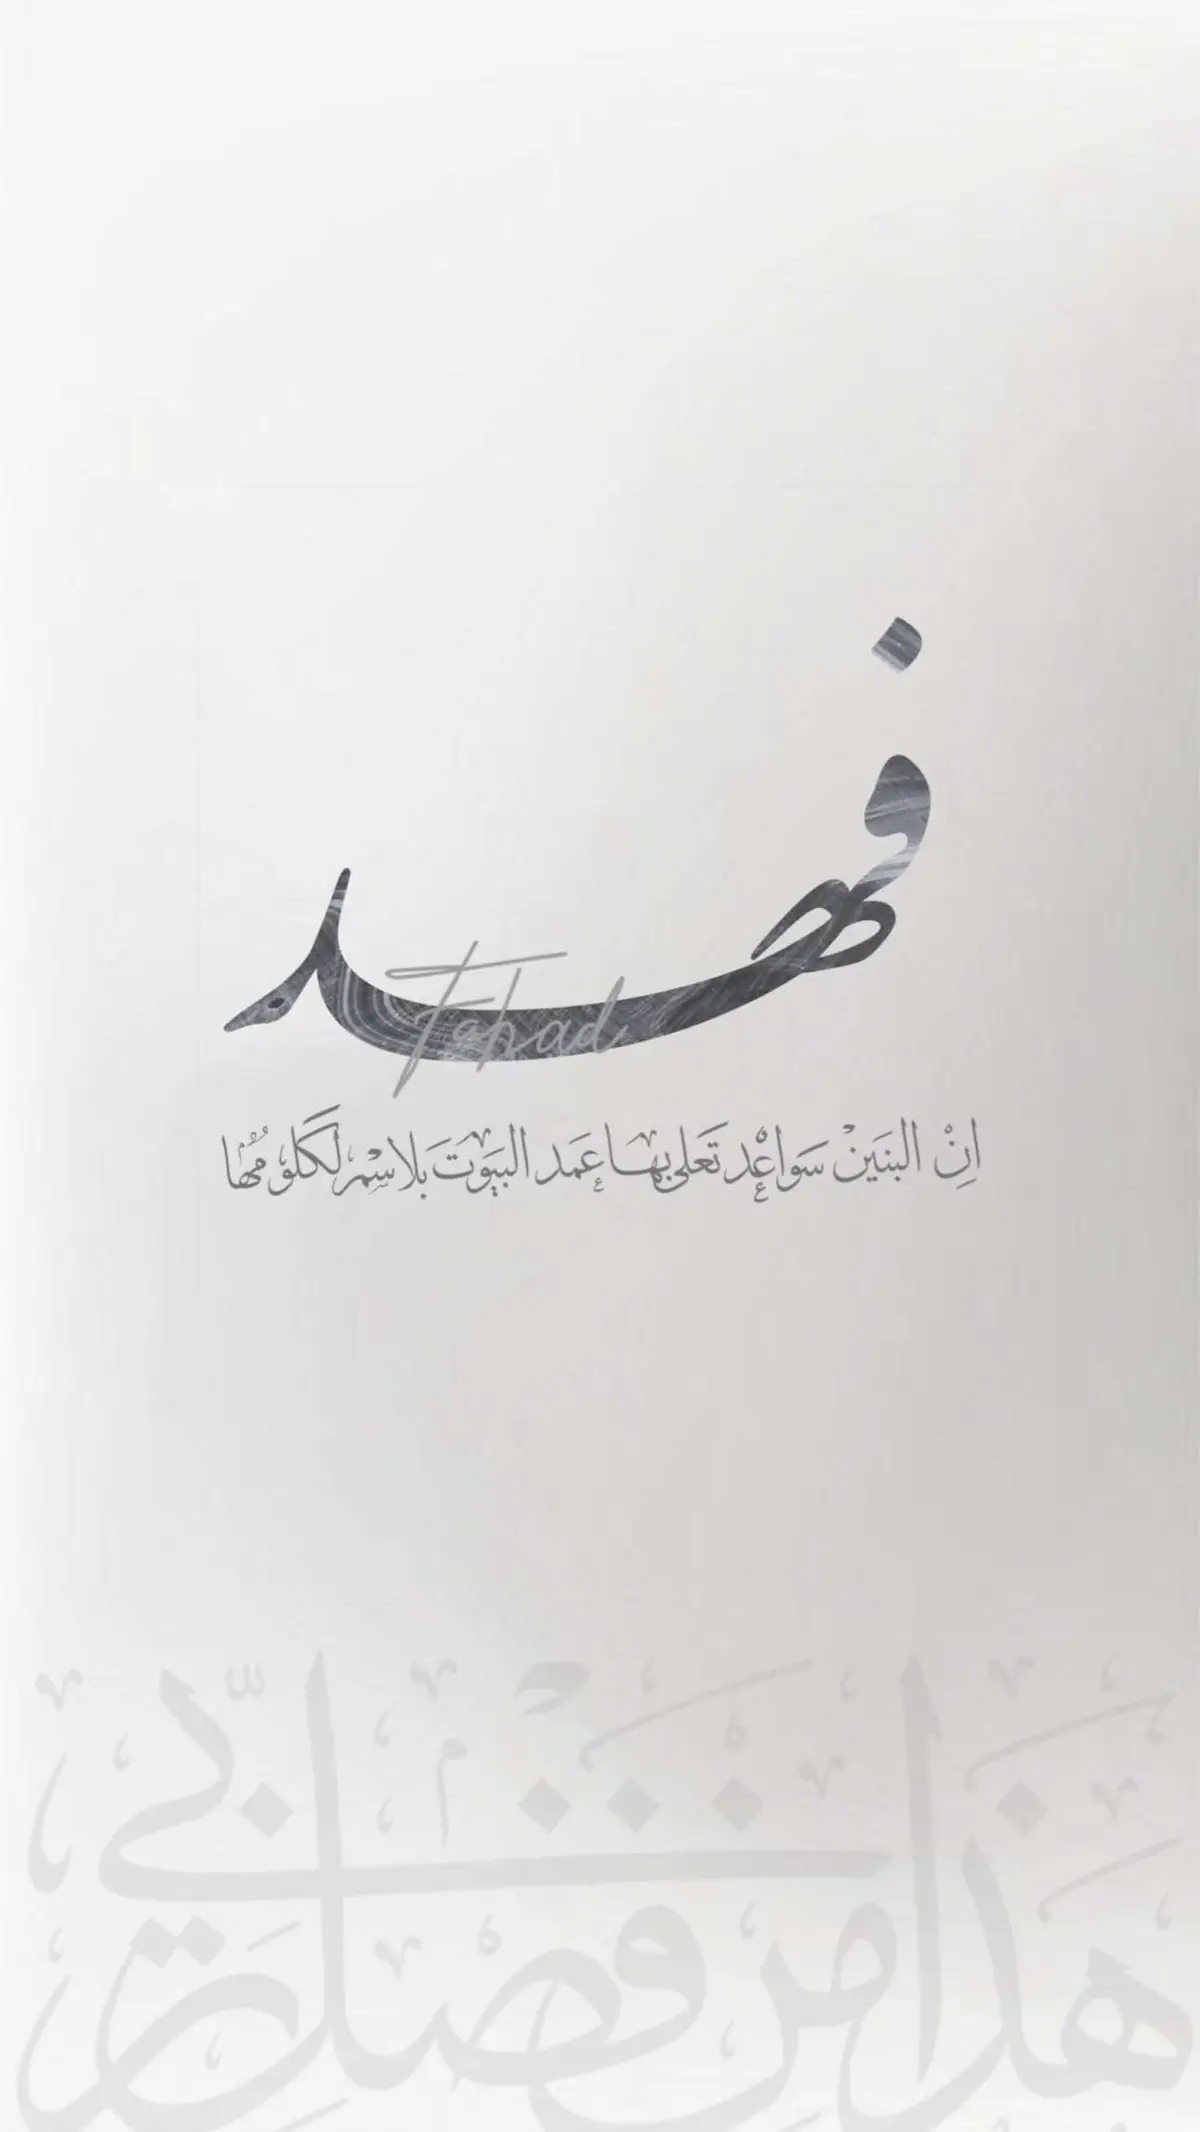 فهد
Fahad
اِنْ البنَينْ سَواعْد تَعلى بها عَمد البيَوتَ بَلاسْم لَكَلومُها
هَذَا مِنْ فَضْلِ رَبِّي